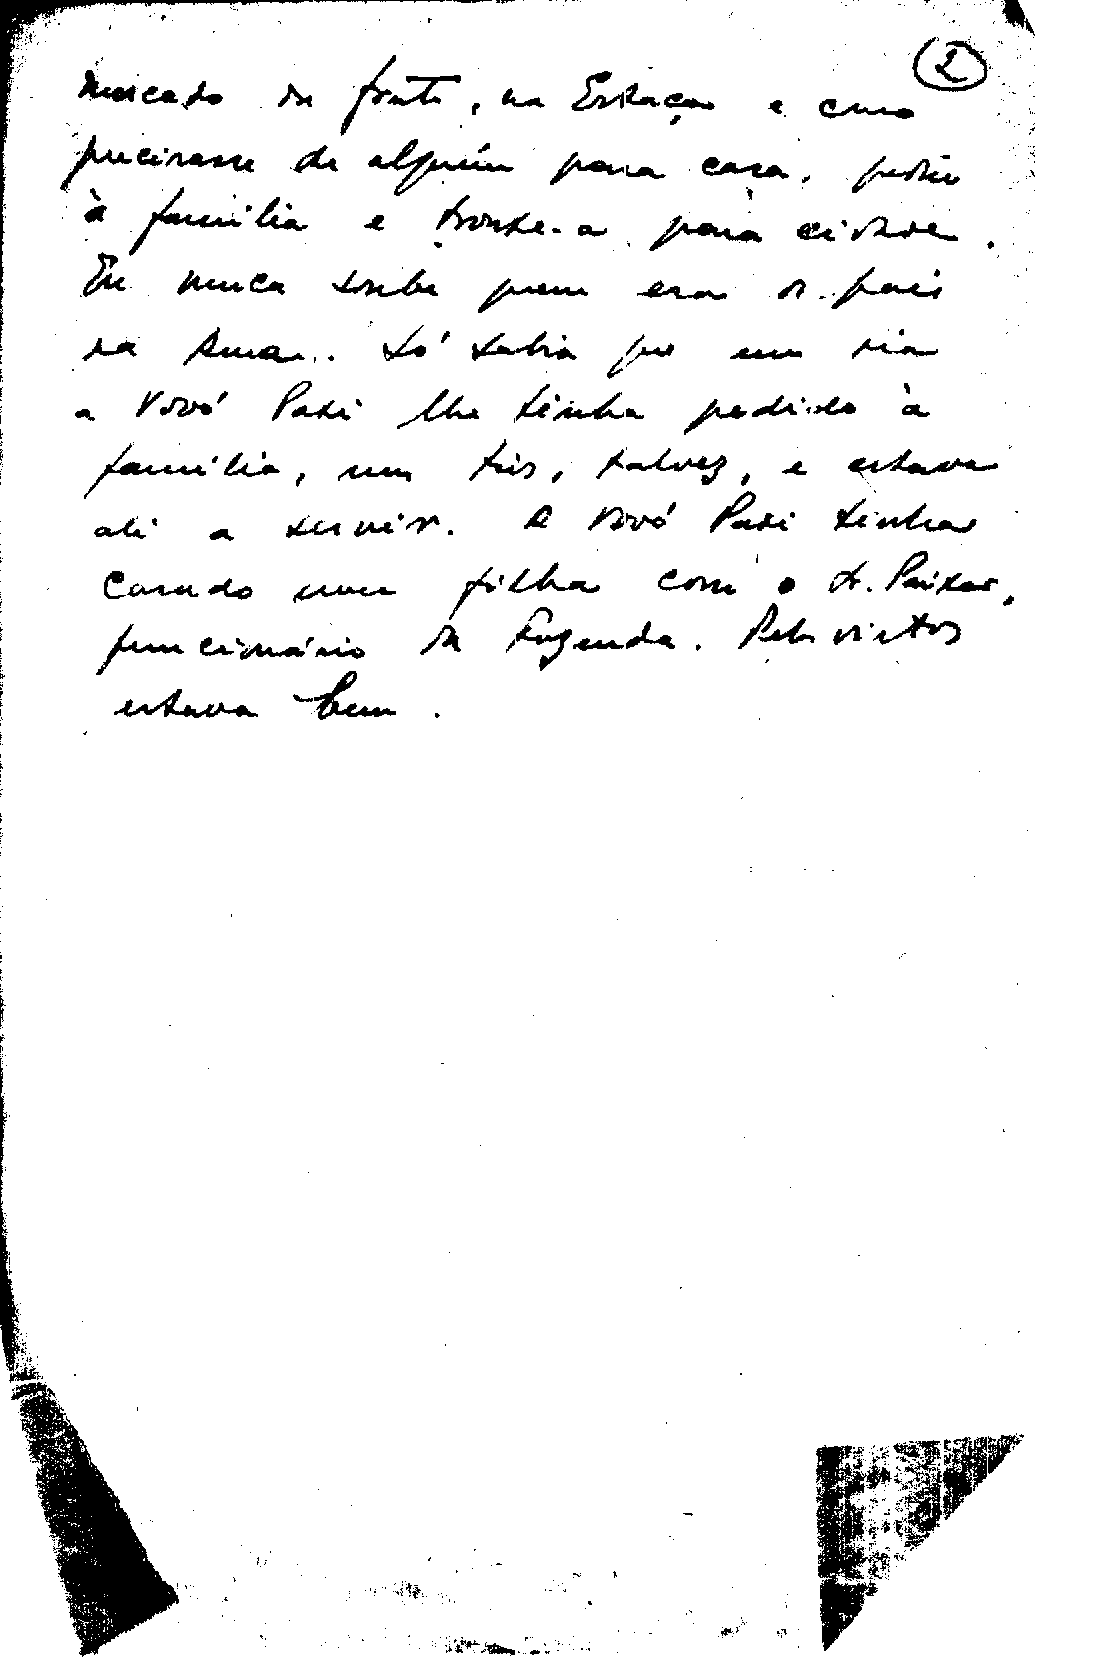 2
mercado da fruta, na Estação e como
precisasse de alguém para casa, pediu
à família e trouxe-a para cidade.
Eu nunca soube quem eram os pais
da Ama.. Só sabia que um dia
a Vovó Paxi lhe tinha pedido à
família, um tio, talvez, e estava
ali a servir. A Vovó Paxi tinha
casado uma filha com o Sr. Paixão,
funcionário da Fazenda. Pelos vistos
estava bem.